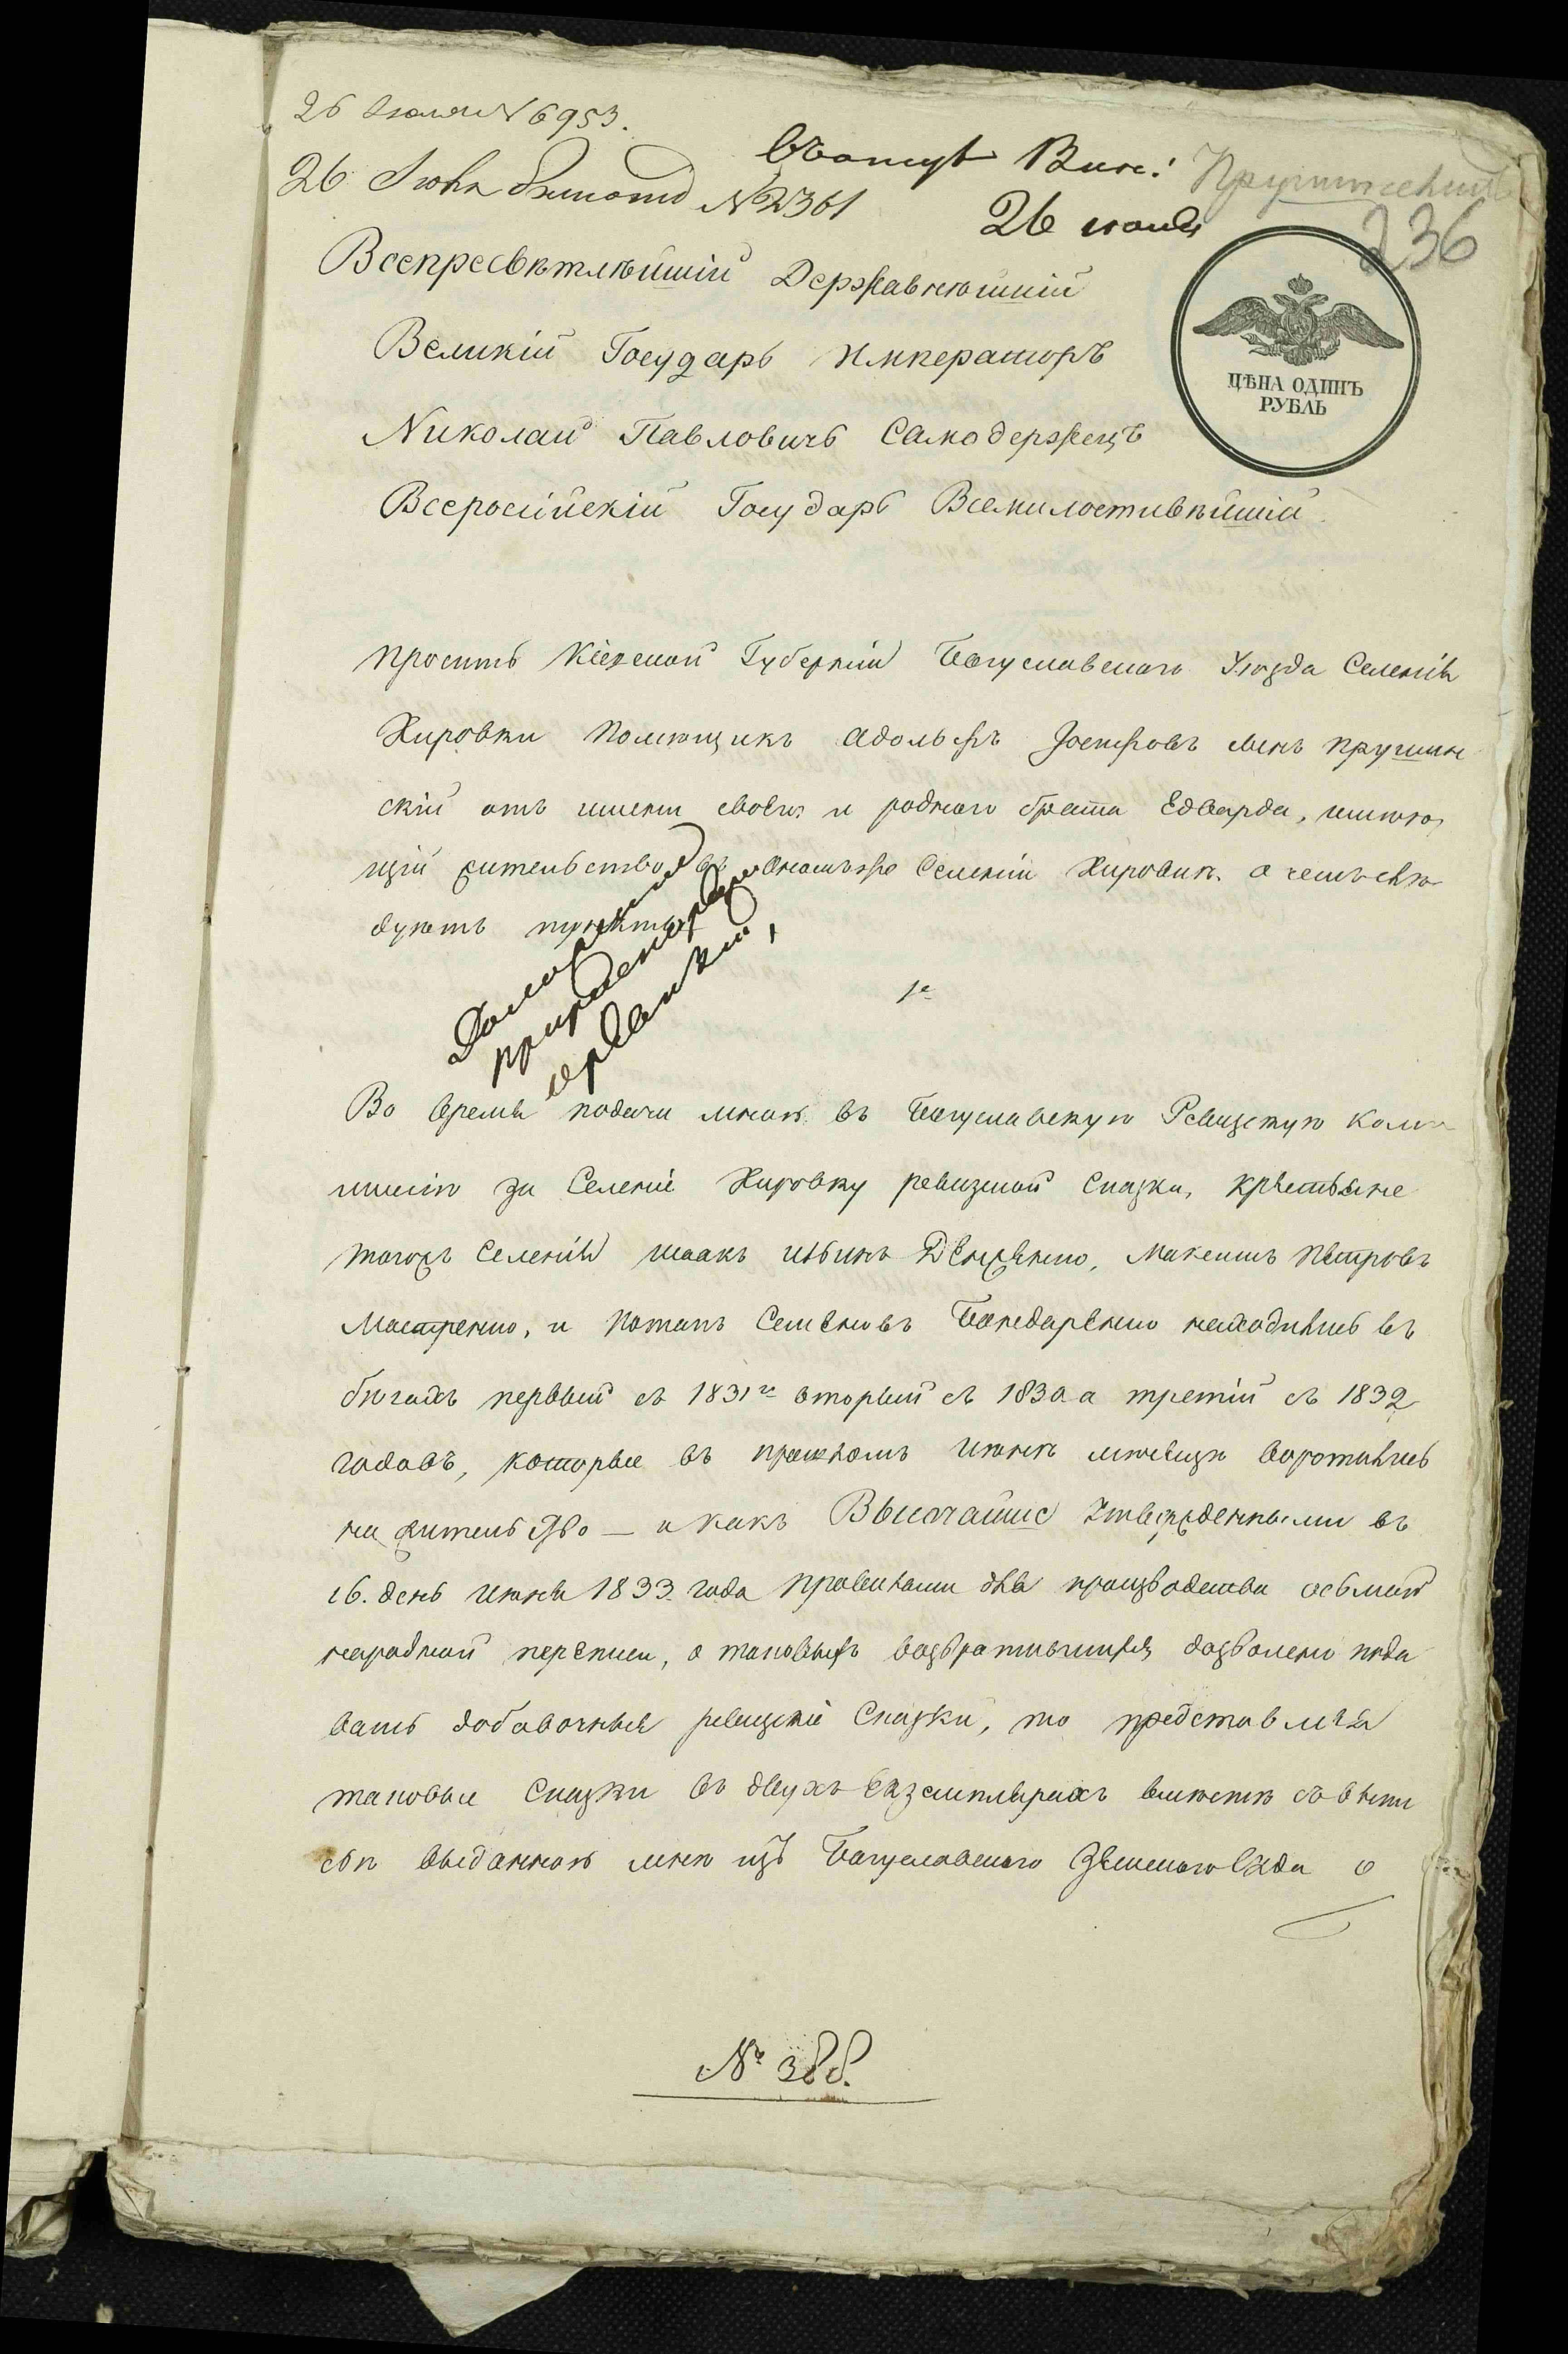 26 Июля № 6953.
26 Июля № 2361
26 июля
236
Всепресвѣтлѣйшій Державнѣйшій
Великій Государь Императоръ
ЦѢНА ОДИНЪ
РУБЛЬ
Николай Павловичъ Самодержецъ
Всеросійскій Государь Всемилостивѣйшій
проситъ Кіевской Губерніи Богуславского Уѣзда Селенія
Хировки Помѣщикъ Адольфъ Іосифовъ сынъ Прушин
скій отъ имени своего и роднаго брата Едварда, имѣю
щій жительство въ Селеніи Хировки. о чемъ слѣ
дуютъ пункты
1е
Во время подачи мною въ Богуславскую Ревизскую Ком
мисію за Селеніе Хировку ревизской Сказки, крестьяне
тогожъ Селенія Исакъ Максимъ Петровъ
и Потапъ Семеновъ Бондаренко находились въ
бѣгахъ первый съ 1831го вторый съ 1830 а третій съ 1832
годовъ, которые въ Июнѣ мѣсяцѣ воротились
на жительство — и какъ Высочайше Утвержденными въ
16. день Июня 1833 года правилами для производства осьмой
народной переписи, о таковыхъ возвратившихся дозволено пода
вать добавочныя ревизскіе Сказки, то представляя
таковые Сказки въ двухъ Екземплярахъ вмѣстѣ
выданною мнѣ изъ Богуславского Земского Суда о
№ 388.